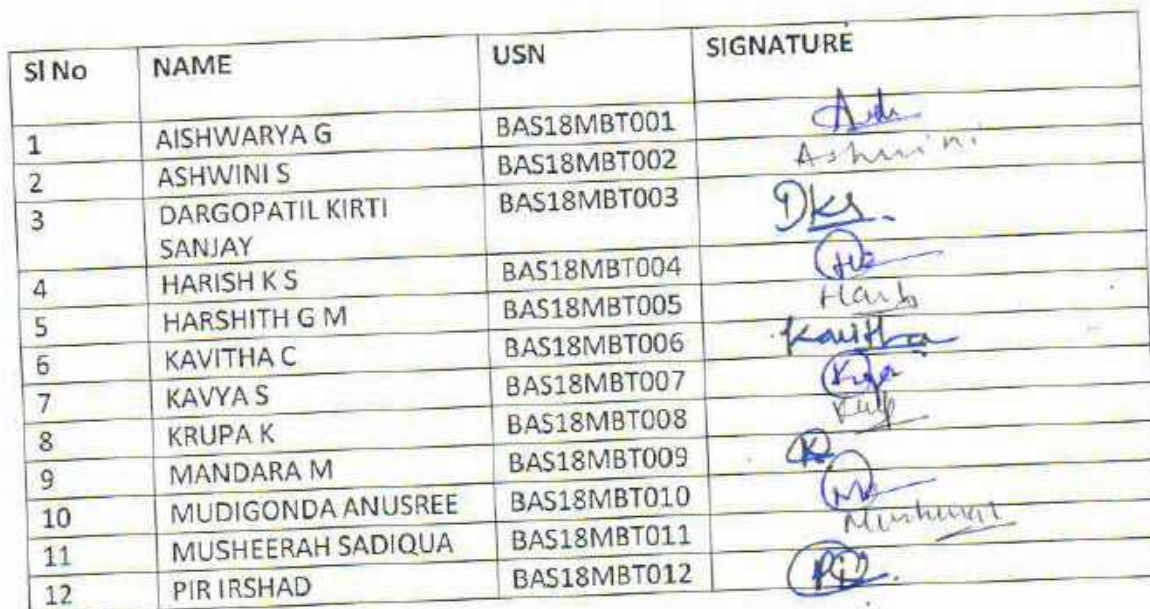 Sl No NAME USN SIGNATURE
1 AISHWARYA G BAS18MBT001
2 ASHWINI S BAS18MBT002 Ashwini
3 DARGOPATIL KIRTI BAS18MBT003 DKS.
SANJAY
4 HARISH K S BAS18MBT004
5 HARSHITH G M BAS18MBT005
6 KAVITHA C BAS18MBT006 Kavitha
7 KAVYA S BAS18MBT007
8 KRUPA K BAS18MBT008
9 MANDARA M BAS18MBT009
10 MUDIGONDA ANUSREE BAS18MBT010
11 MUSHEERAH SADIQUA BAS18MBT011
12 PIR IRSHAD BAS18MBT012